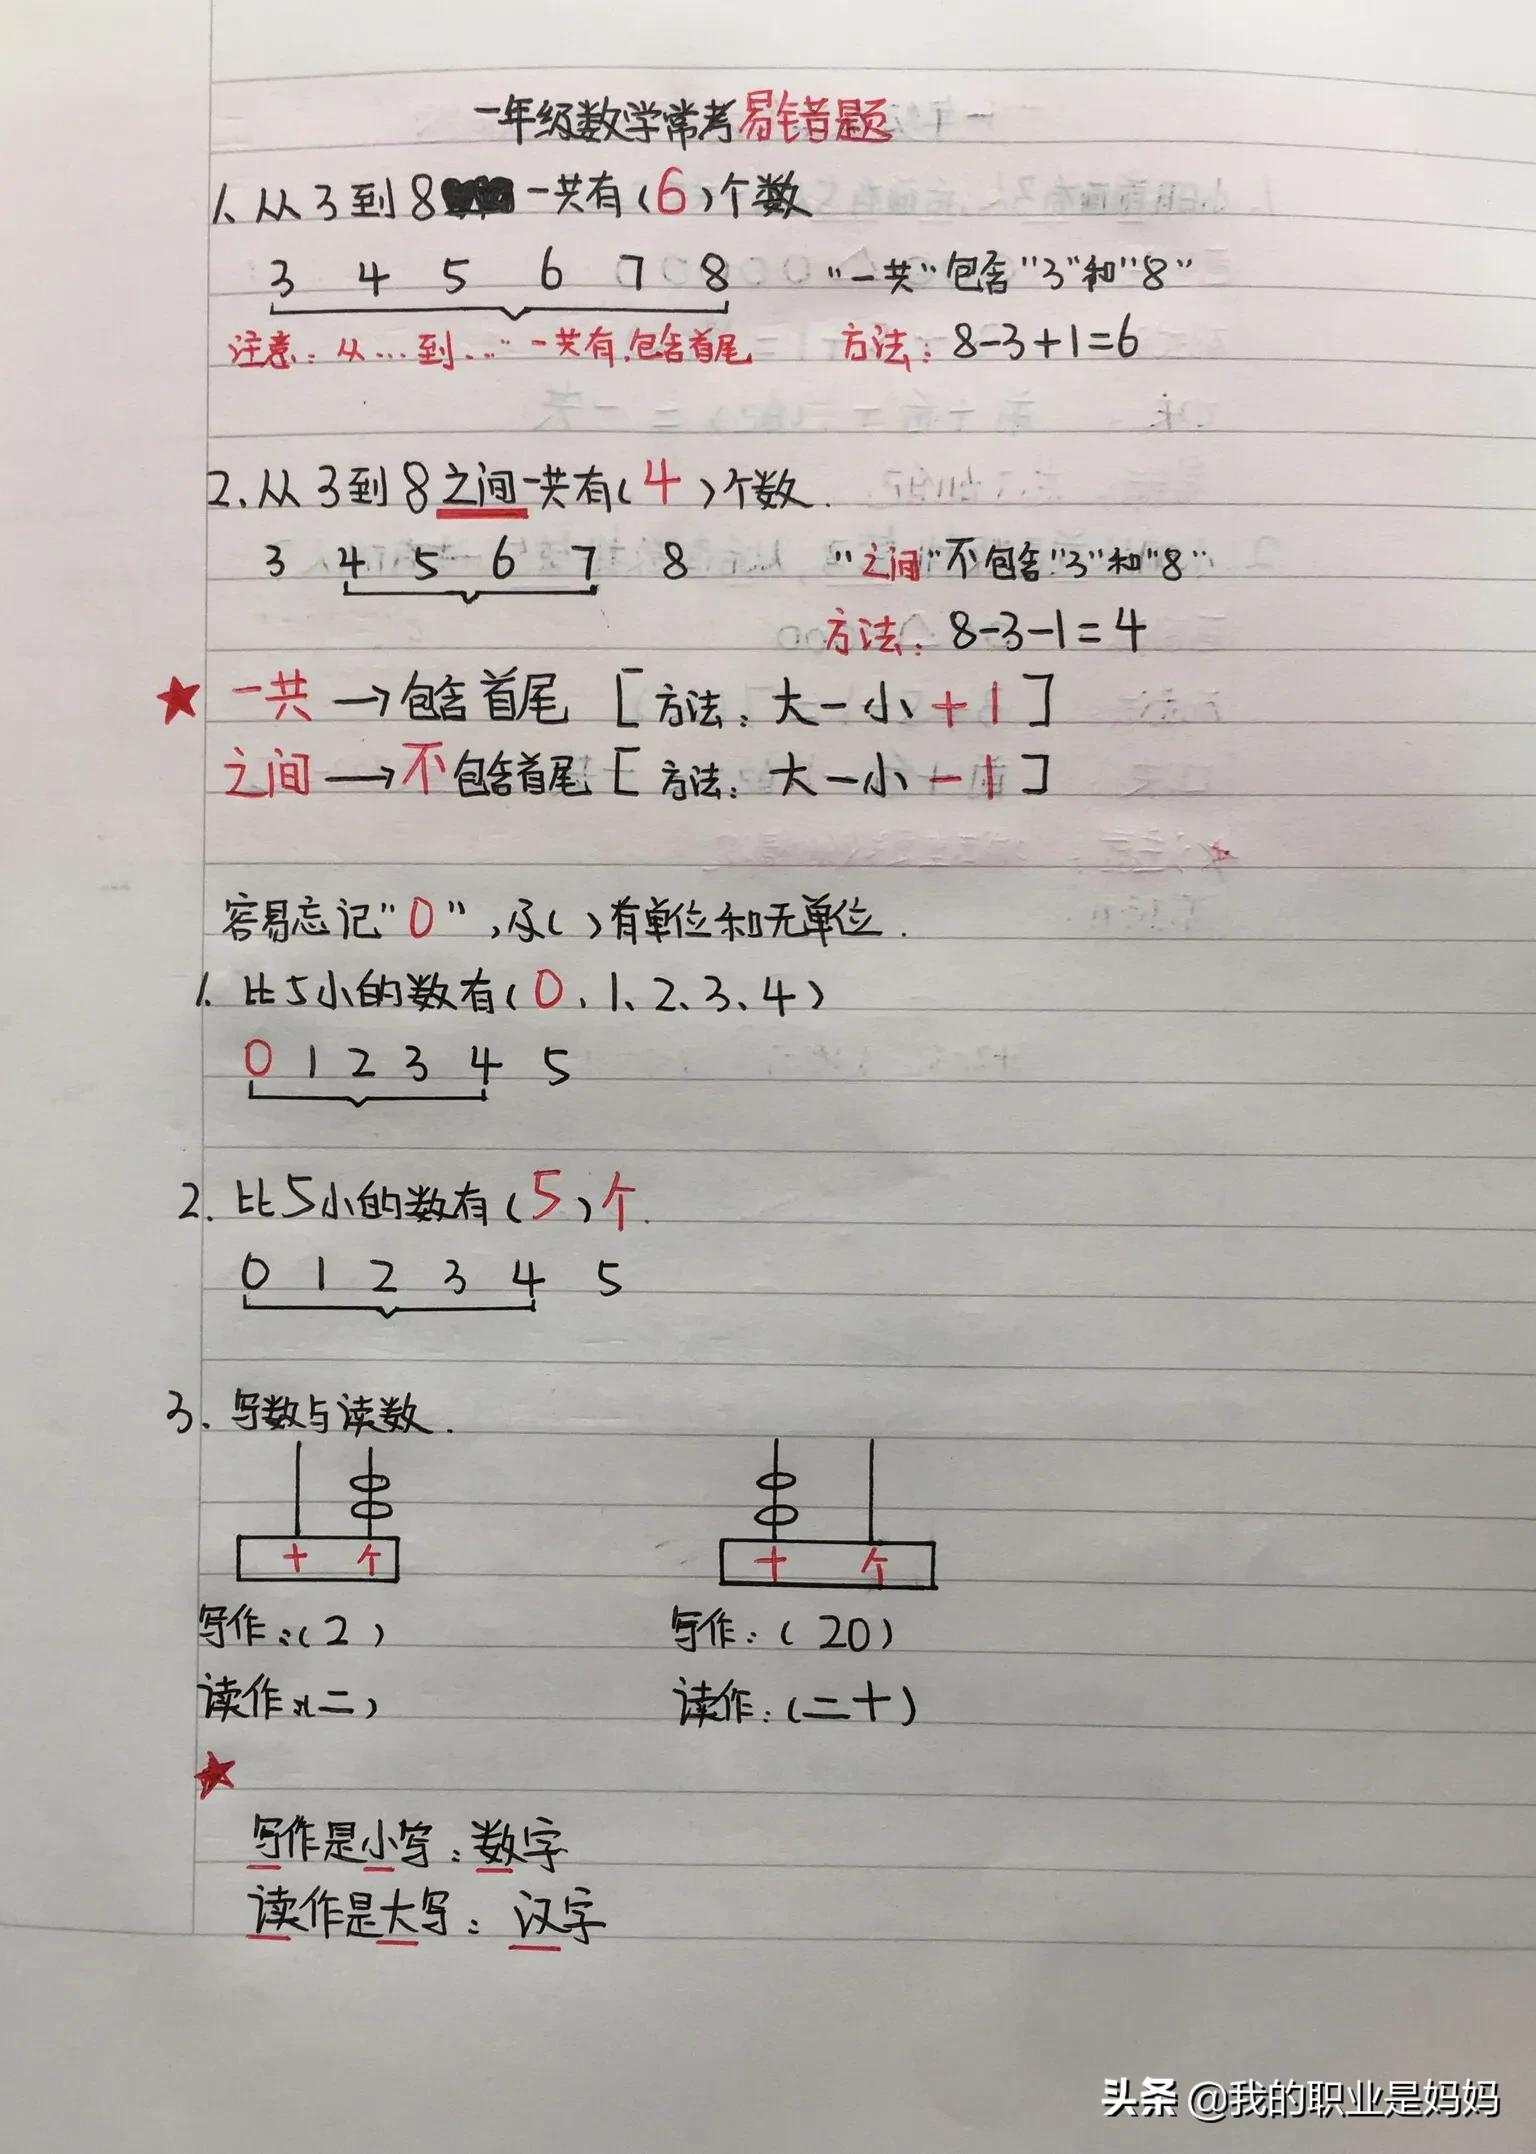 一年级数学常考易错题
1、从3到8一共有(6)个数
3 4 5 6 7 8 "一共"包含"3"和"8"
注意：从…到…一共有，包含首尾 方法：8-3+1=6
2、从3到8之间一共有(4)个数.
3 4 5 6 7 8 "之间"不包含"3"和"8"
方法：8-3-1=4
★ 一共→包含首尾 [方法：大-小+1]
之间→不包含首尾[方法：大-小-1]
容易忘记"0",及( )有单位和无单位.
1、比5小的数有(0、1、2、3、4)
0 1 2 3 4 5
2. 比5小的数有(5)个.
0 1 2 3 4 5
3. 写数与读数.
十 个 十 个
写作:(2) 写作:(20)
读作:(二) 读作:(二十)
★
写作是小写：数字
读作是大写：汉字
头条 @我的职业是妈妈